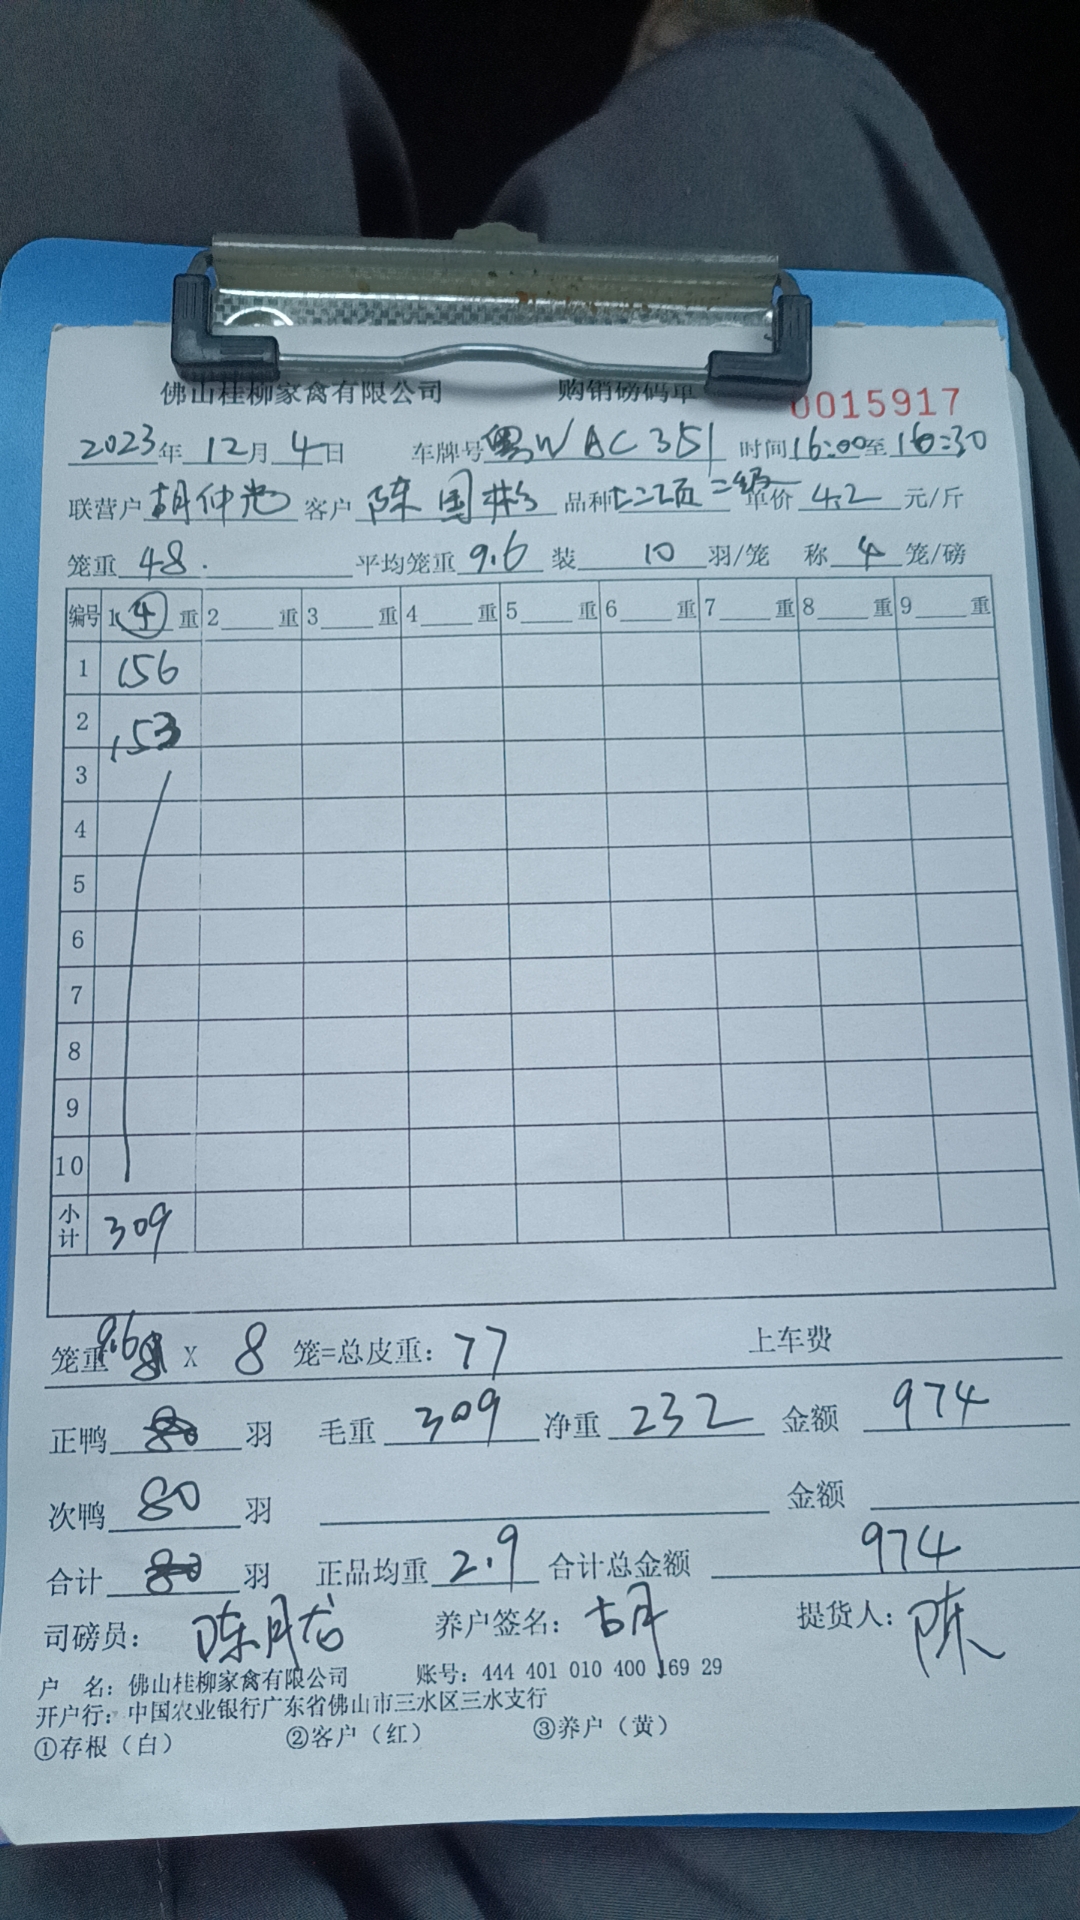 佛山桂柳家禽有限公司 购销磅码单 0015917
2023年 12月 4日 车牌号 粤W AC351 时间 16:00至16:30
联营户 胡仲 客户 陈国 品种 二级 单价 4.2 元/斤
笼重 48. 平均笼重 9.6 装 10 羽/笼 称 4 笼/磅
编号 1 4 重 2 重 3 重 4 重 5 重 6 重 7 重 8 重 9 重
1 156
2 153
3
4
5
6
7
8
9
10
小计 309
笼重 9.6 X 8 笼=总皮重: 77 上车费
正鸭 80 羽 毛重 309 净重 232 金额 974
次鸭 80 羽 金额
合计 80 羽 正品均重 2.9 合计总金额 974
司磅员: 陈月龙 养户签名: 胡 提货人: 陈
户 名: 佛山桂柳家禽有限公司 账号: 444 401 010 400 169 29
开户行: 中国农业银行广东省佛山市三水区三水支行
①存根（白） ②客户（红） ③养户（黄）